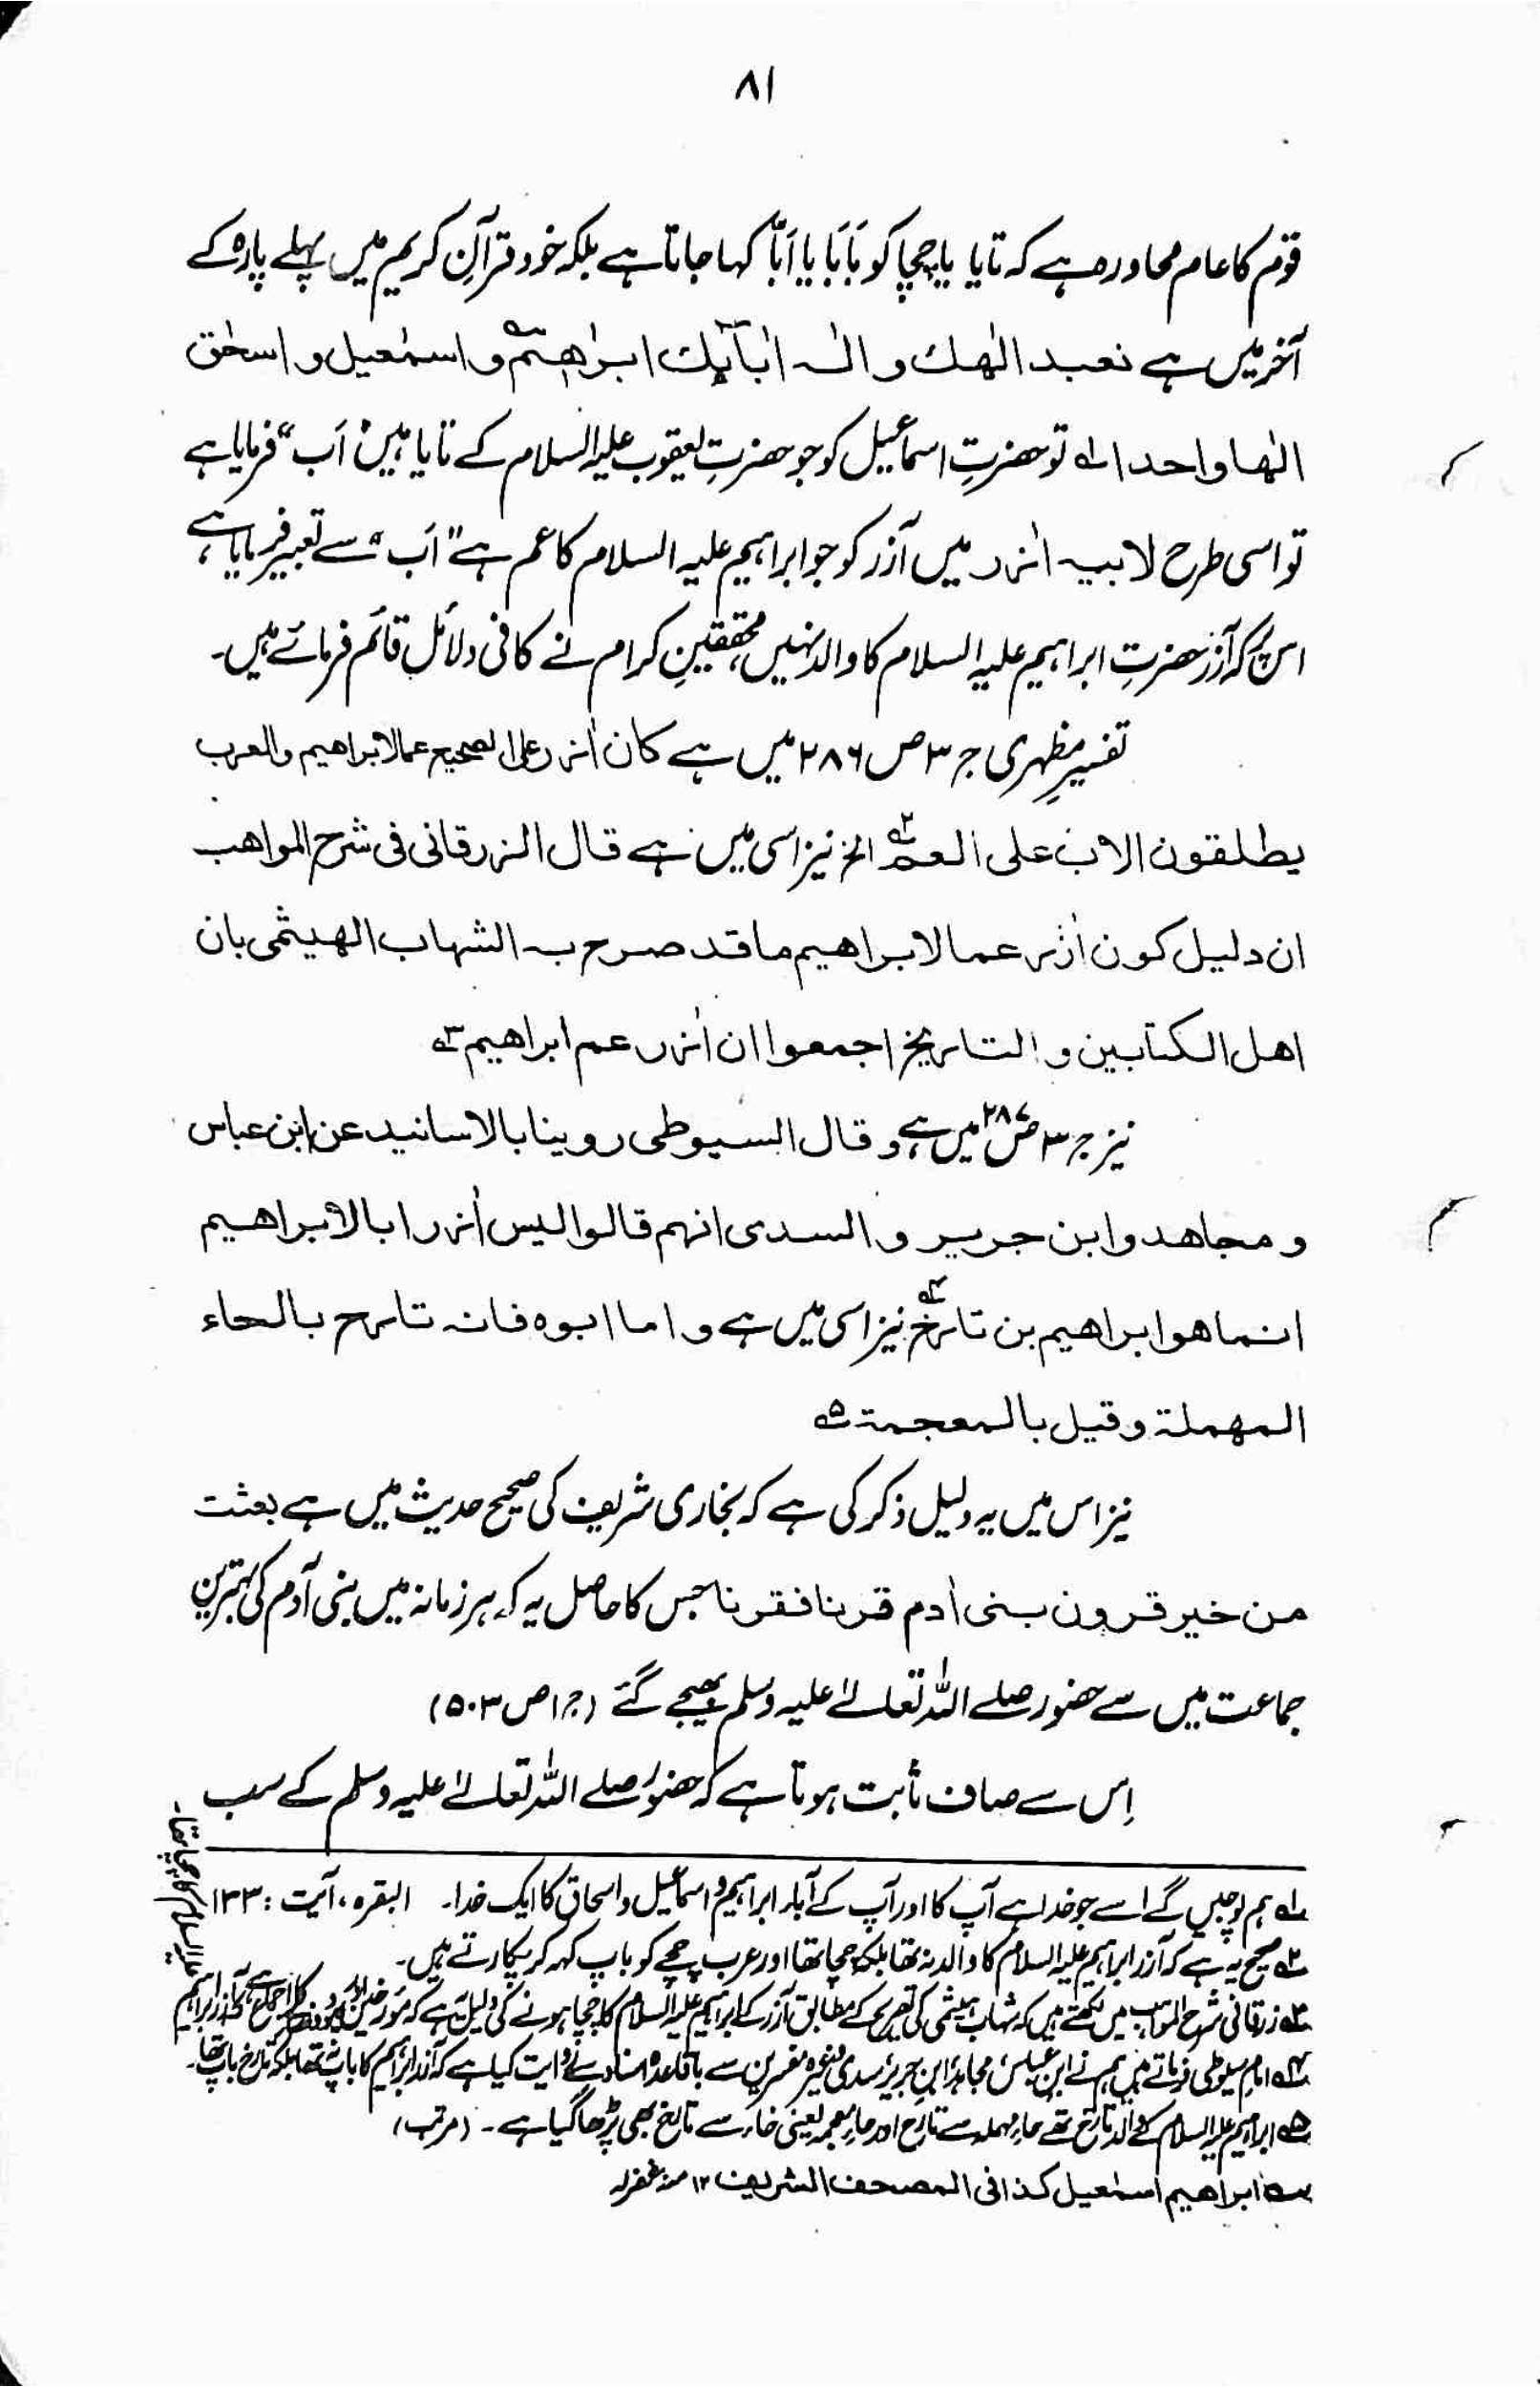 ۸۱
قوم کا عام محاورہ ہے کہ تایا یا چچا کو بَابَا یا اَبَّا کہا جاتا ہے بلکہ خود قرآنِ کریم میں پہلے پارہ کے
آخر میں ہے نعبد الٰھک والٰہ اٰبآئک ابراھیم و اسمٰعیل و اسحٰق
الٰھا واحدا لہ۱ تو حضرتِ اسماعیل کو جو حضرتِ یعقوب علیہ السلام کے تایا ہیں "اَب" فرمایا ہے
تو اسی طرح لابیہ اٰزر میں آزر کو جو ابراہیم علیہ السلام کا عم ہے "اَب" سے تعبیر فرمایا ہے،
اس پر کہ آزر حضرتِ ابراہیم علیہ السلام کا والد نہیں، محققینِ کرام نے کافی دلائل قائم فرمائے ہیں۔
تفسیرِ مظہری ج ۳ ص ۲۸۶ میں ہے کان اٰزر علی الصحیح عما لابراھیم والعرب
یطلقون الاب علی العم ۲ الخ نیز اسی میں ہے قال الزرقانی فی شرح المواھب
ان دلیل کون اٰزر عما لابراھیم ما قد صرح بہ الشہاب الھیثمی بان
اھل الکتابین والتاریخ اجمعوا ان اٰزر عم ابراھیم ۳
نیز ج ۳ ص ۲۸۷ میں ہے وقال السیوطی روینا بالاسانید عن ابن عباس
و مجاھد وابن جریر والسدی انہم قالوا لیس اٰزر ابا لابراھیم
انما ھو ابراھیم بن تارخ ۴ نیز اسی میں ہے واما ابوہ فانہ تارح بالحاء
المھملۃ وقیل بالمعجمۃ ۵
نیز اس میں یہ دلیل ذکر کی ہے کہ بخاری شریف کی صحیح حدیث میں ہے بعثت
من خیر قرون بنی اٰدم قرنا فقرنا جس کا حاصل یہ کہ ہر زمانہ میں بنی آدم کی بہترین
جماعت میں سے حضور صلے اللہ تعالیٰ علیہ وسلم بھیجے گئے (ج ۱ ص ۵۰۳)
اِس سے صاف ثابت ہوتا ہے کہ حضور صلے اللہ تعالیٰ علیہ وسلم کے سب
۱ ہم پوجیں گے اسے جو خدا ہے آپ کا اور آپ کے آباء ابراہیم و اسماعیل و اسحاق کا ایک خدا۔ البقرہ، آیت : ۱۳۳
۲ صحیح یہ ہے کہ آزر ابراہیم علیہ السلام کا والد نہ تھا بلکہ چچا تھا اور عرب چچے کو باپ کہہ کر پکارتے ہیں۔
۳ زرقانی شرح المواہب میں لکھتے ہیں کہ شہاب ہیثمی کی تصریح کے مطابق آزر کے ابراہیم علیہ السلام کا چچا ہونے کی دلیل یہ ہے کہ مؤرخین کا اجماع ہے کہ آزر ابراہیم
علیہ السلام کا چچا تھا۔
۴ امام سیوطی فرماتے ہیں ہم نے ابن عباس، مجاہد، ابن جریر، سدی وغیرہ مفسرین سے باقاعدہ اسناد سے روایت کیا ہے کہ آزر ابراہیم کا باپ نہ تھا بلکہ تارخ باپ تھا۔
۵ ابراہیم علیہ السلام کے والد تارخ تھے حاء مہملہ سے تارح اور حاء معجمہ یعنی خاء سے تارخ بھی پڑھا گیا ہے۔ (مرتب)
ابراھیم اسمٰعیل کذا فی المصحف الشریف ۱۲ منہ غفرلہ